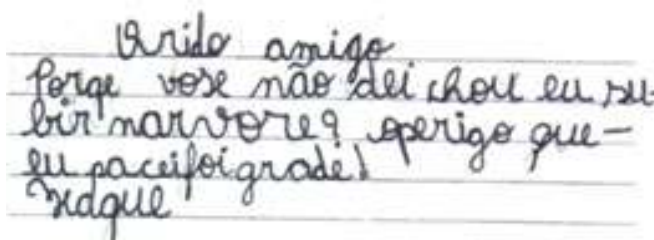 Qrido amigo
Porqe vose não dei chou eu su-
bir narvore? operigo que-
eu paceifoi grade!